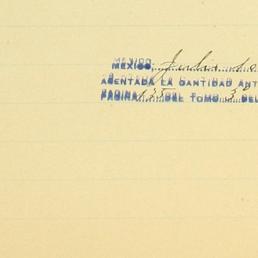 MEXICO,
ASENTADA LA CANTIDAD ANT
PAGINA 135 DEL TOMO 3 DEL